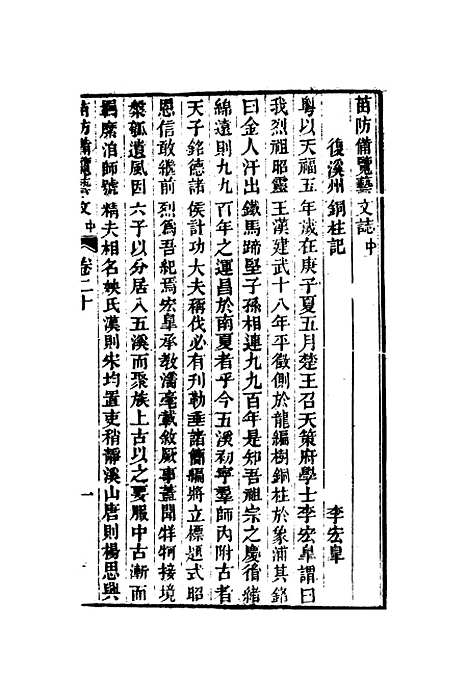 苗防備覽藝文誌中
復溪州銅柱記　李宏臯
粵以天福五年歲在庚子夏五月楚王召天策府學士李宏臯謂曰
我烈祖昭靈王漢建武十八年平徵側於龍編樹銅柱於象浦其銘
曰金人汗出鐵馬蹄堅子孫相連九九百年是知吾祖宗之慶僭緒
綿遠則九九百年之運昌於南夏者乎今五溪初寧羣師內附古者
天子銘德諸侯計功大夫稱伐必有刊勒垂諸簡編將立標題式昭
恩信敢繼前烈爲吾紀焉宏臯承教濡毫載敘厥事蓋聞牂牁接境
槃瓠遺風因六子以分居入五溪而聚族上古以之要服中古漸而
羈縻洎師號精夫相名姎氏漢則宋均置吏稍靜溪山唐則楊思興
苗防備覽藝文中　卷二十　一